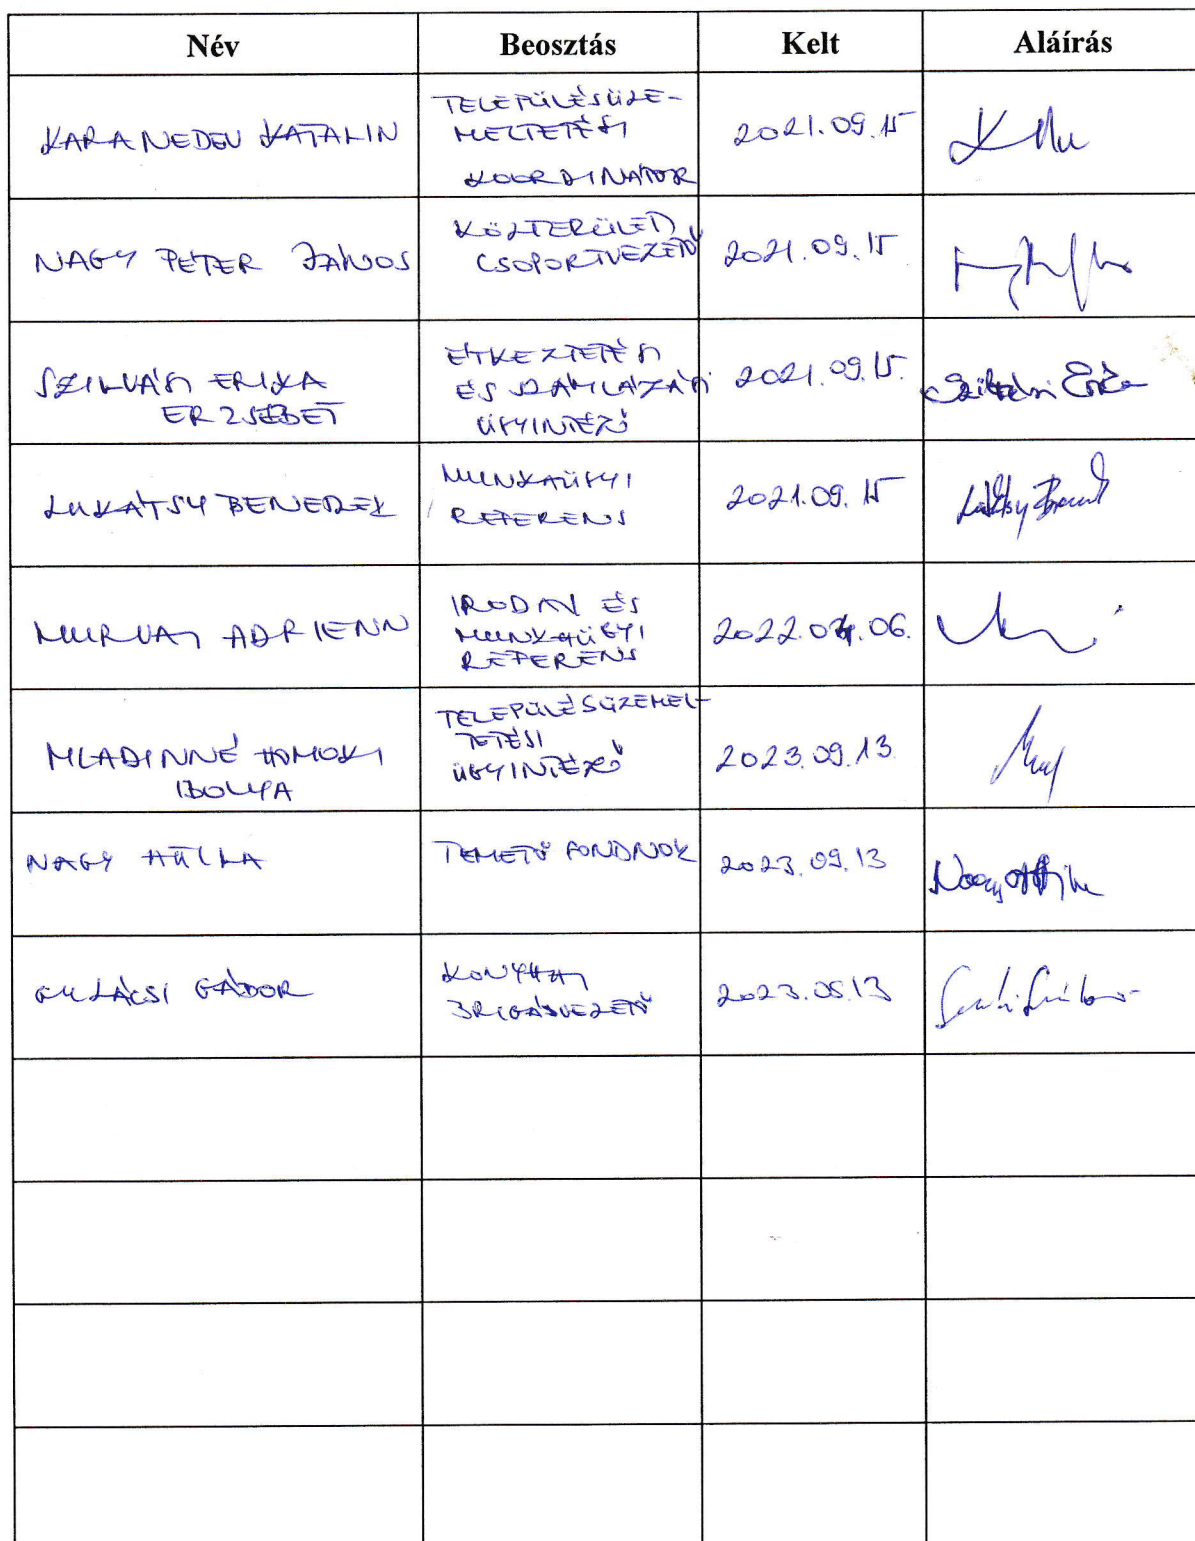 Név Beosztás Kelt Aláírás
KARANEDEV KATALIN
TELEPÜLÉSÜZE-
MELTETÉSI
KOORDINÁTOR
2021.09.15
NAGY PÉTER JÁNOS
KÖZTERÜLETI
CSOPORTVEZETŐ
2021.09.15
SZILVÁSI ERIKA
ERZSÉBET
ÉTKEZTETÉSI
ÉS SZÁMLÁZÁSI
ÜGYINTÉZŐ
2021.09.15.
Szilvási Erika
LUKÁTSY BENEDEK
MUNKAÜGYI
REFERENS
2021.09.15
Lukátsy Benedek
MURVAI ADRIENN
IRODAI ÉS
MUNKAÜGYI
REFERENS
2022.04.06.
MLADINNÉ HOMOKI
IBOLYA
TELEPÜLÉSÜZEMEL-
TETÉSI
ÜGYINTÉZŐ
2023.09.13
NAGY ATTILA
TEMETŐ GONDNOK
2023.09.13
Nagy Attila
GULÁCSI GÁBOR
KONYHAI
BRIGÁDVEZETŐ
2023.09.13